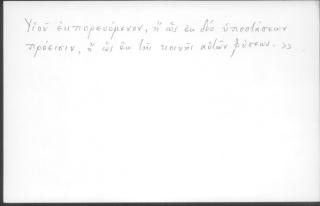 Υἱοῦ ἐκπορευόμενον, ἢ ὡς ἐκ δύο ὑποστάσεων
πρόεισιν, ἢ ὡς ἐκ τῆς κοινῆς αὐτῶν φύσεως. »